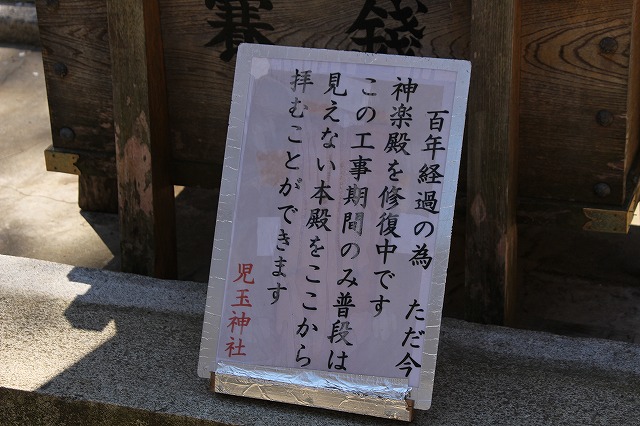 賽銭
百年経過の為　ただ今
神楽殿を修復中です
この工事期間のみ普段は
見えない本殿をここから
拝むことができます
児玉神社